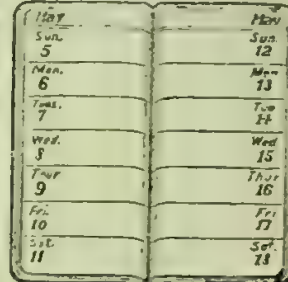 May
Sun.
5
Mon.
6
Tues.
7
Wed.
8
Thur
9
Fri.
10
Sat.
11
May
Sun.
12
Mon
13
Tue
14
Wed
15
Thur
16
Fri
17
Sat.
18